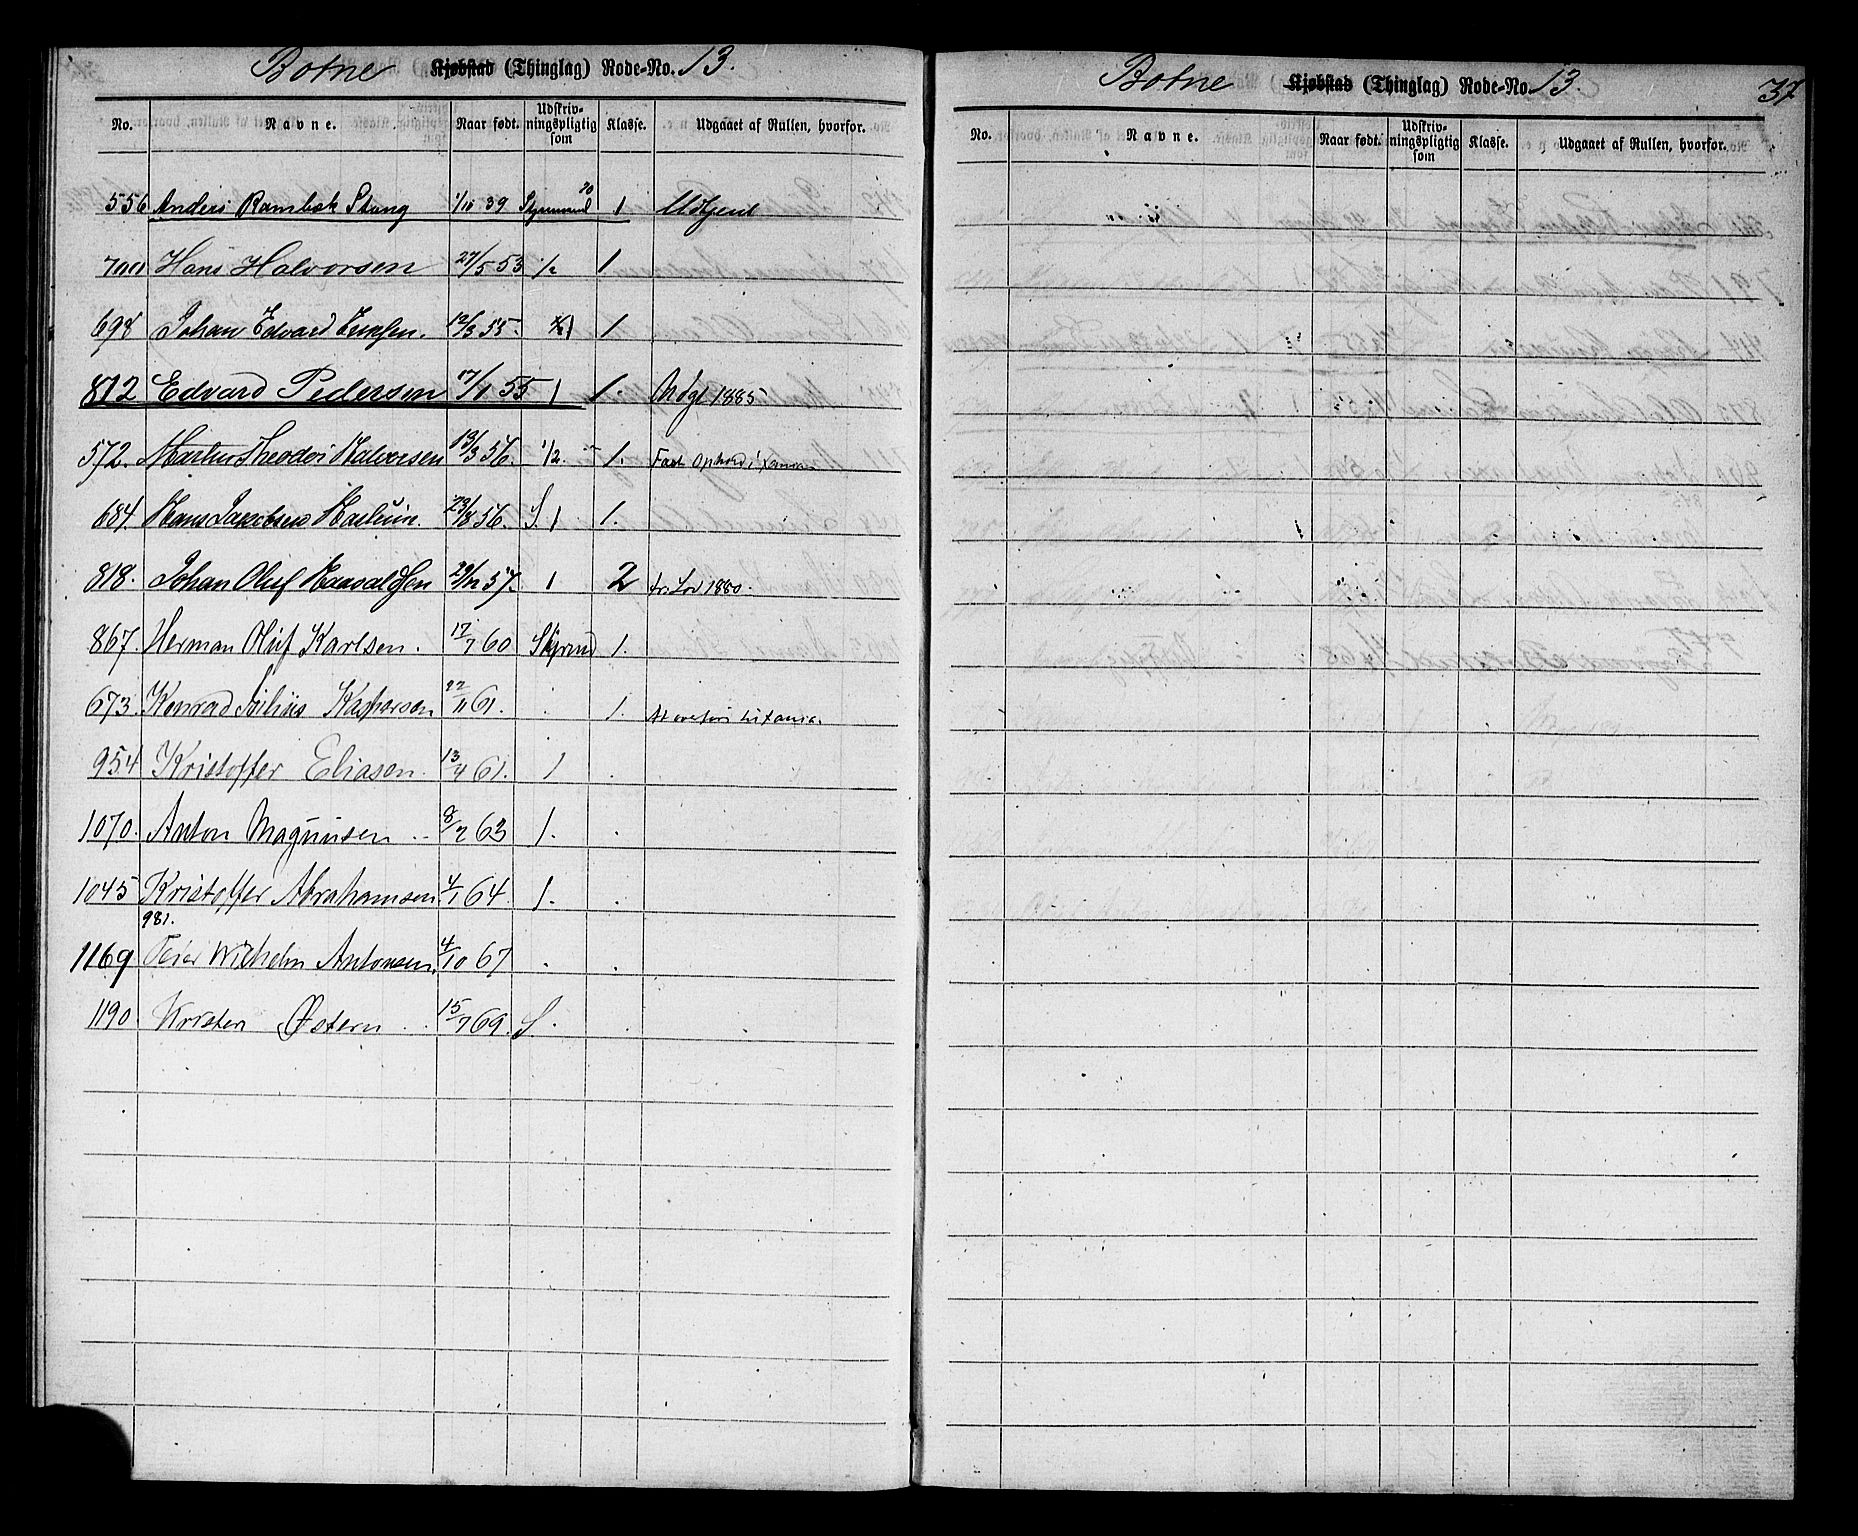 Botne Kjøbstad (Thinglag) Rode-No. 13.
No. Navne. Naar født. Udskrivningspligtig som Klasse. Udgaaet af Rullen, hvorfor.
556 Anders Rambek Stang 1/10 39 20 1 Udtjent
700 Hans Halvorsen 27/5 53 1/2 1
698 Johan Edvard 12/3 55. 1 1
812 Edvard Pedersen 17/1 55 1 1. Udgl 1885
572. Martin Theodor Halvorsen 13/3 56. 1/2. 1. Fast Ophold i
684. Hans Jakobsen 23/8 56. S. 1 1.
818. Johan Oluf Haavaldsen 29/12 57. 1 2 fr. Lov 1880.
867. Herman Oluf Karlsen. 17/7 60 Styrmd 1.
673. Konrad Julius Kaspersen 22/11 61. . 1.
954 Kristoffer Eliasen. 13/4 61. 1 .
1070. Anton Magnusen .. 8/2 63 1. .
1045 Kristoffer Abrahamsen 4/1 64. 1. .
981.
1169 Wilhelm Antonsen. 4/10 67 . .
1190 Kristen Østern .. 15/7 69. S. .
Botne Kjøbstad (Thinglag) Rode-No. 13. 37
No. Navne. Naar født. Udskrivningspligtig som Klasse. Udgaaet af Rullen, hvorfor.